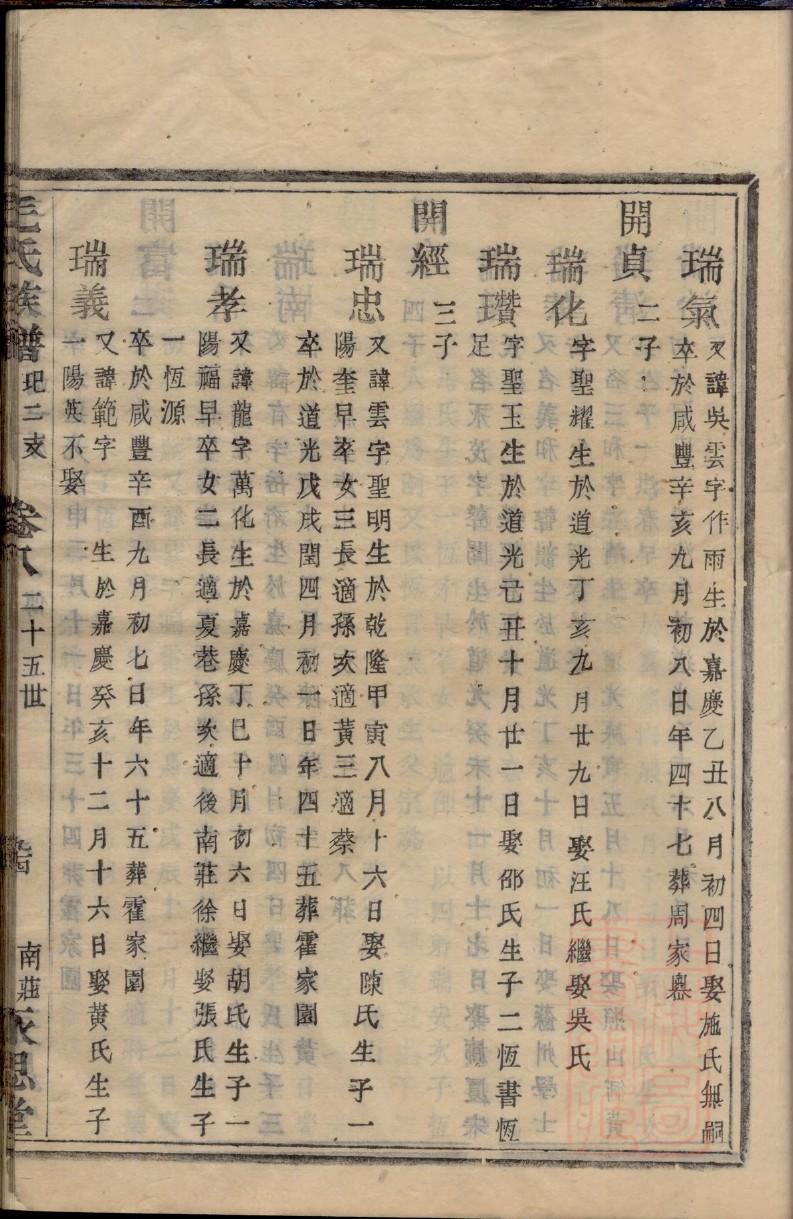 瑞氣 又諱吳雲字作雨生於嘉慶乙丑八月初四日娶施氏無嗣
卒於咸豐辛亥九月初八日年四十七葬周家
開貞 二子
瑞化 字聖耀生於道光丁亥九月廿九日娶汪氏繼娶吳氏
瑞瓚 字聖玉生於道光己丑十月廿一日娶邵氏生子二恆書恆
足
開經 三子
瑞忠 又諱雲字聖明生於乾隆甲寅八月十六日娶陳氏生子一
陽奎早卒女三長適孫次適黃三適蔡
卒於道光戊戌閏四月初一日年四十五葬霍家園
瑞孝 又諱龍字萬化生於嘉慶丁巳十月初六日娶胡氏生子一
陽福早卒女二長適夏巷孫次適後南莊徐繼娶張氏生子
一恆源
卒於咸豐辛酉九月初七日年六十五葬霍家園
瑞義 又諱範字 生於嘉慶癸亥十二月十六日娶黃氏生子
一陽英不娶
毛氏族譜 圯二支 卷八 二十五世 南莊 永思堂